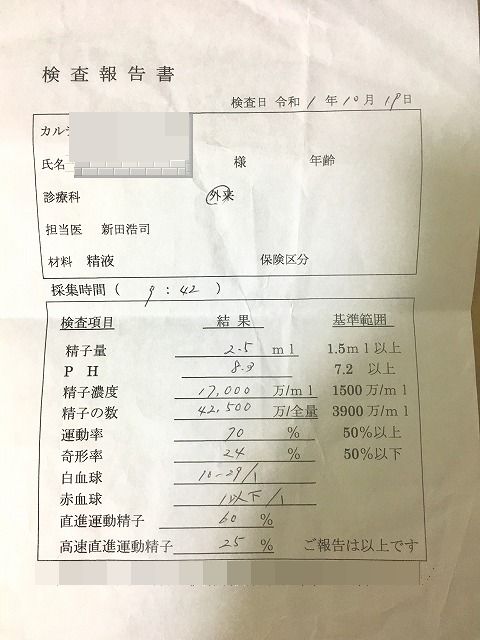 検査報告書
検査日 令和 1 年 10 月 19 日
カル
氏名 様 年齢
診療科 外来
担当医 新田浩司
材料 精液 保険区分
採集時間 ( 9 : 42 )
検査項目 結果 基準範囲
精子量 2.5 ml 1.5ml以上
PH 8.3 7.2 以上
精子濃度 17,000 万/ml 1500万/ml
精子の数 42,500 万/全量 3900万/ml
運動率 70 % 50%以上
奇形率 24 % 50%以下
白血球 10-29/1
赤血球 1以下/1
直進運動精子 60 %
高速直進運動精子 25 % ご報告は以上です